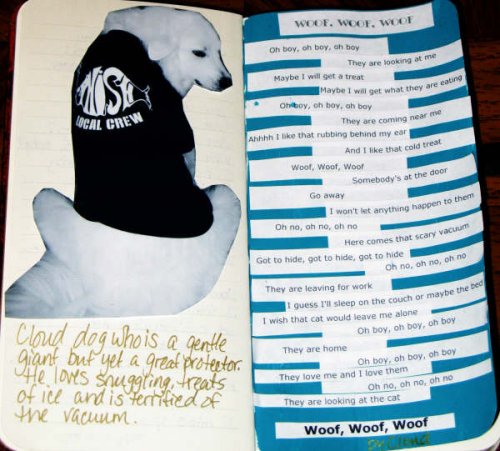 PHISH
LOCAL CREW
Cloud dog who is a gentle
giant but yet a great protector.
He loves snuggling, treats
of ice and is terrified of
the vacuum.
WOOF, WOOF, WOOF
Oh boy, oh boy, oh boy
They are looking at me
Maybe I will get a treat
Maybe I will get what they are eating
Oh boy, oh boy, oh boy
They are coming near me
Ahhhh I like that rubbing behind my ear
And I like that cold treat
Woof, Woof, Woof
Somebody's at the door
Go away
I won't let anything happen to them
Oh no, oh no, oh no
Here comes that scary vacuum
Got to hide, got to hide, got to hide
Oh no, oh no, oh no
They are leaving for work
I guess I'll sleep on the couch or maybe the bed
I wish that cat would leave me alone
Oh boy, oh boy, oh boy
They are home
Oh boy, oh boy, oh boy
They love me and I love them
Oh no, oh no, oh no
They are looking at the cat
Woof, Woof, Woof